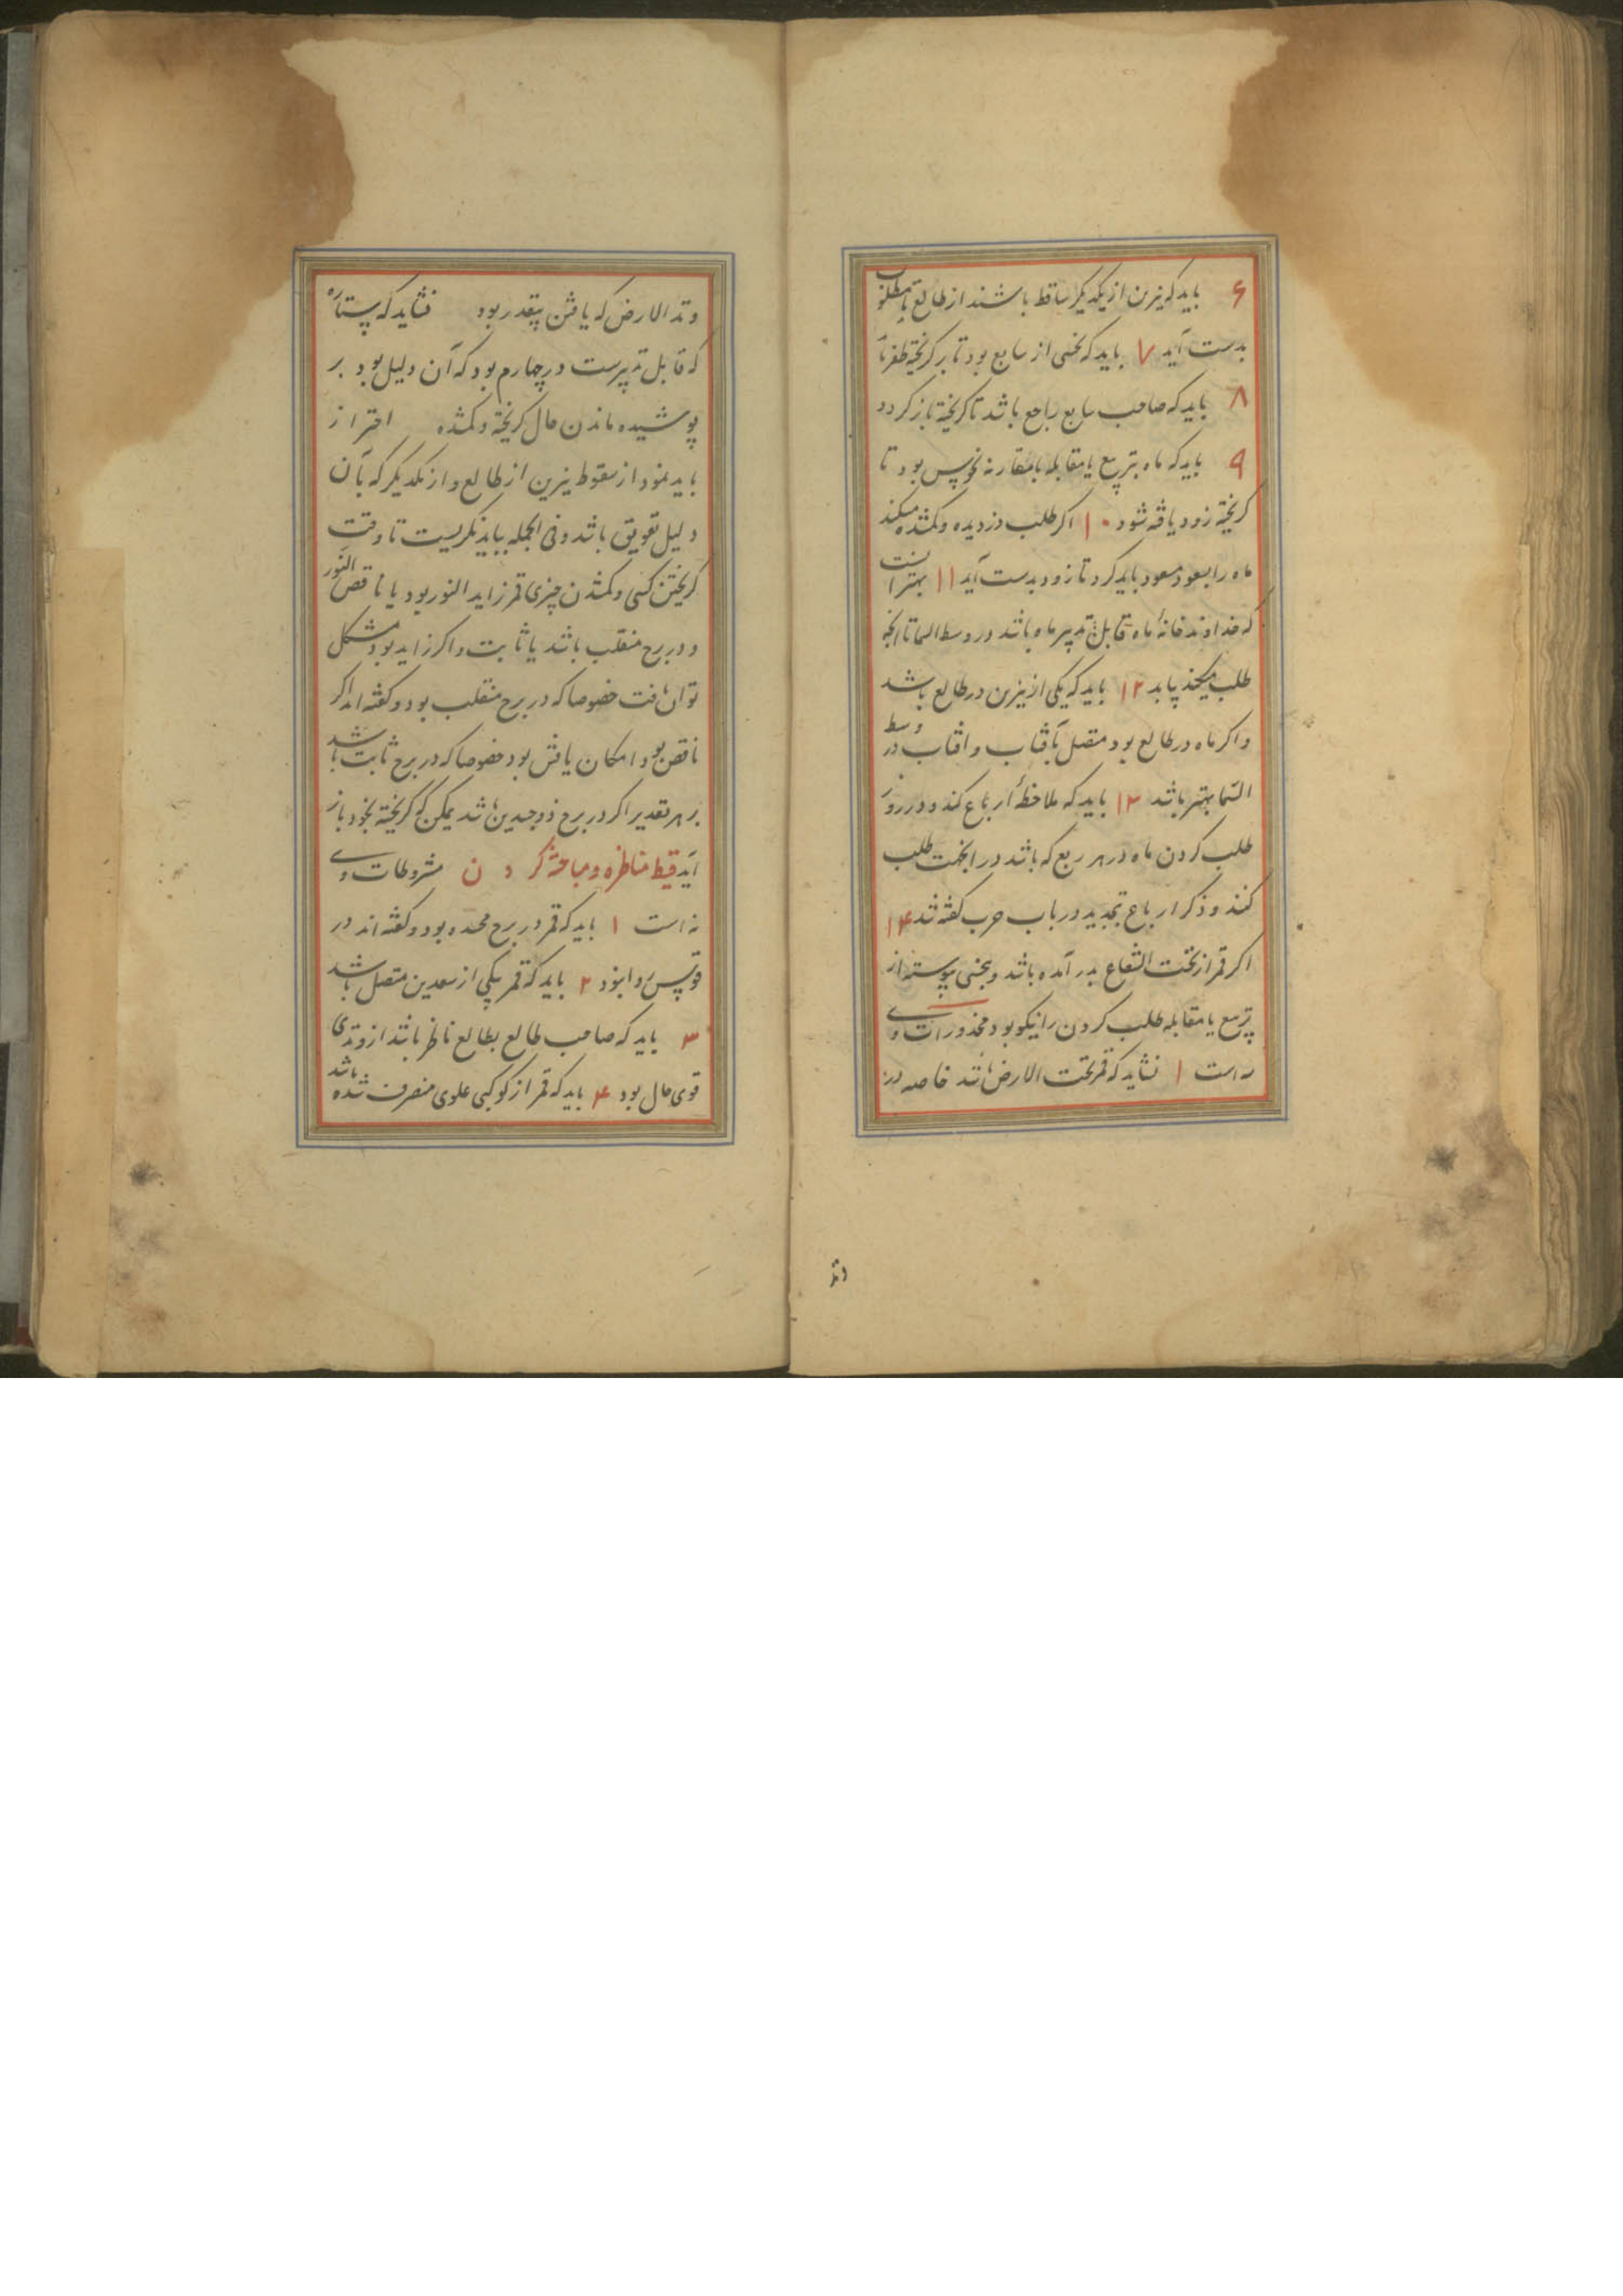 ۶ باید که نیرین از یکدیگر ساقط باشند از طالع تا مطلوب
بدست آید ۷ باید که نحسی از سابع بود تا بر گریخته ظفر
۸ باید که صاحب سابع راجع باشد تا گریخته باز گردد
۹ باید که ماه بتربیع یا مقابله یا مقارنه نحوس بود تا
گریخته زود یافته شود ۱۰ اگر طلب دزدیده و گمشده میکند
ماه را بسعود مسعود باید کرد تا زود بدست آید ۱۱ بهتر انست
که خداوند خانهٔ ماه قابل تدبیر ماه باشد در وسط السما تا آنچه
طلب میکند یابد ۱۲ باید که یکی از نیرین در طالع باشد
و اگر ماه در طالع بود متصل بآفتاب و افتاب در وسط
السّما بهتر باشد ۱۳ باید که ملاحظهٔ ارباع کند و در روز
طلب کردن ماه در هر ربع که باشد در انجهت طلب
کنند و ذکر ارباع بتجدید در باب حرب گفته شد ۱۴
اگر قمر از تحت الشعاع بدر آمده باشد و بنحسی پیوسته از
تربیع یا مقابله طلب کردن را نیکو بود محذورات وی
سه است ۱ نشاید که قمر تحت الارض باشد خاصه در
وتد
وتد الارض که یافتن بیقدر بود نشاید که ستاره
که قابل تدبیرست در چهارم بود که آن دلیل بود بر
پوشیده ماندن حال گریخته و گمشده احتراز
باید نمود از سقوط نیرین از طالع و از یکدیگر که بآن
دلیل تعویق باشد و فی الجمله بباید نگریست تا وقت
گریختن کسی و گمشدن چیزی قمر زاید النور بود یا ناقص النور
و در برج منقلب باشد یا ثابت و اگر زاید بود مشکل
توان یافت خصوصا که در برج منقلب بود و گفته اند اگر
ناقص بود امکان یافتن بود خصوصا که در برج ثابت باشد
بر هر تقدیر اگر در برج ذوجسدین باشد ممکن که گریخته بخود باز
آید مناظره و مباحثه کردن مشروطات وی
نه است ۱ باید که قمر در برج محمده بود و گفته اند در
قوس روا بود ۲ باید که قمر بیکی از سعدین متصل باشد
۳ باید که صاحب طالع بطالع ناظر باشد از وتدی
قوی حال بود ۴ باید که قمر از کوکبی علوی منصرف شده باشد